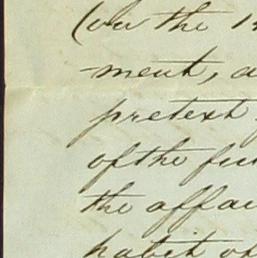 (on the 1
-ment, a
pretext
of the fu
the affai
habit of